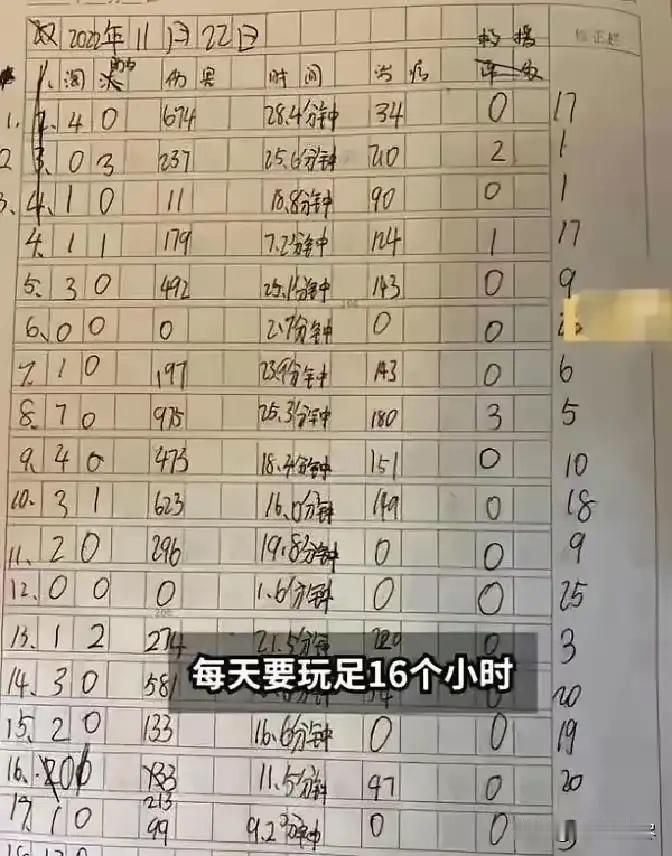 双 2022年11月22日 救援
淘汰 助 伤果 时间 治疗
1. 4 0 674 28.4分钟 34 0 17
2 3. 0 3 237 25.6分钟 210 2 1
3. 4. 1 0 11 10.8分钟 90 0 1
4. 1 1 179 7.2分钟 124 1 17
5. 3 0 492 25.1分钟 143 0 9
6. 0 0 0 2.7分钟 0 0
7. 1 0 197 23.9分钟 143 0 6
8. 7 0 975 25.3分钟 180 3 5
9. 4 0 473 18.4分钟 151 0 10
10. 3 1 623 16.0分钟 149 0 18
11. 2 0 296 19.8分钟 0 0 9
12. 0 0 0 1.6分钟 0 0 25
200
13. 1 2 274 21.5分钟 220 0 3
每天要玩足16个小时
14. 3 0 581 20
15. 2 0 133 16.6分钟 0 0 19
16. 11.5分钟 47 0 20
213
17. 1 0 99 9.2分钟 0 0